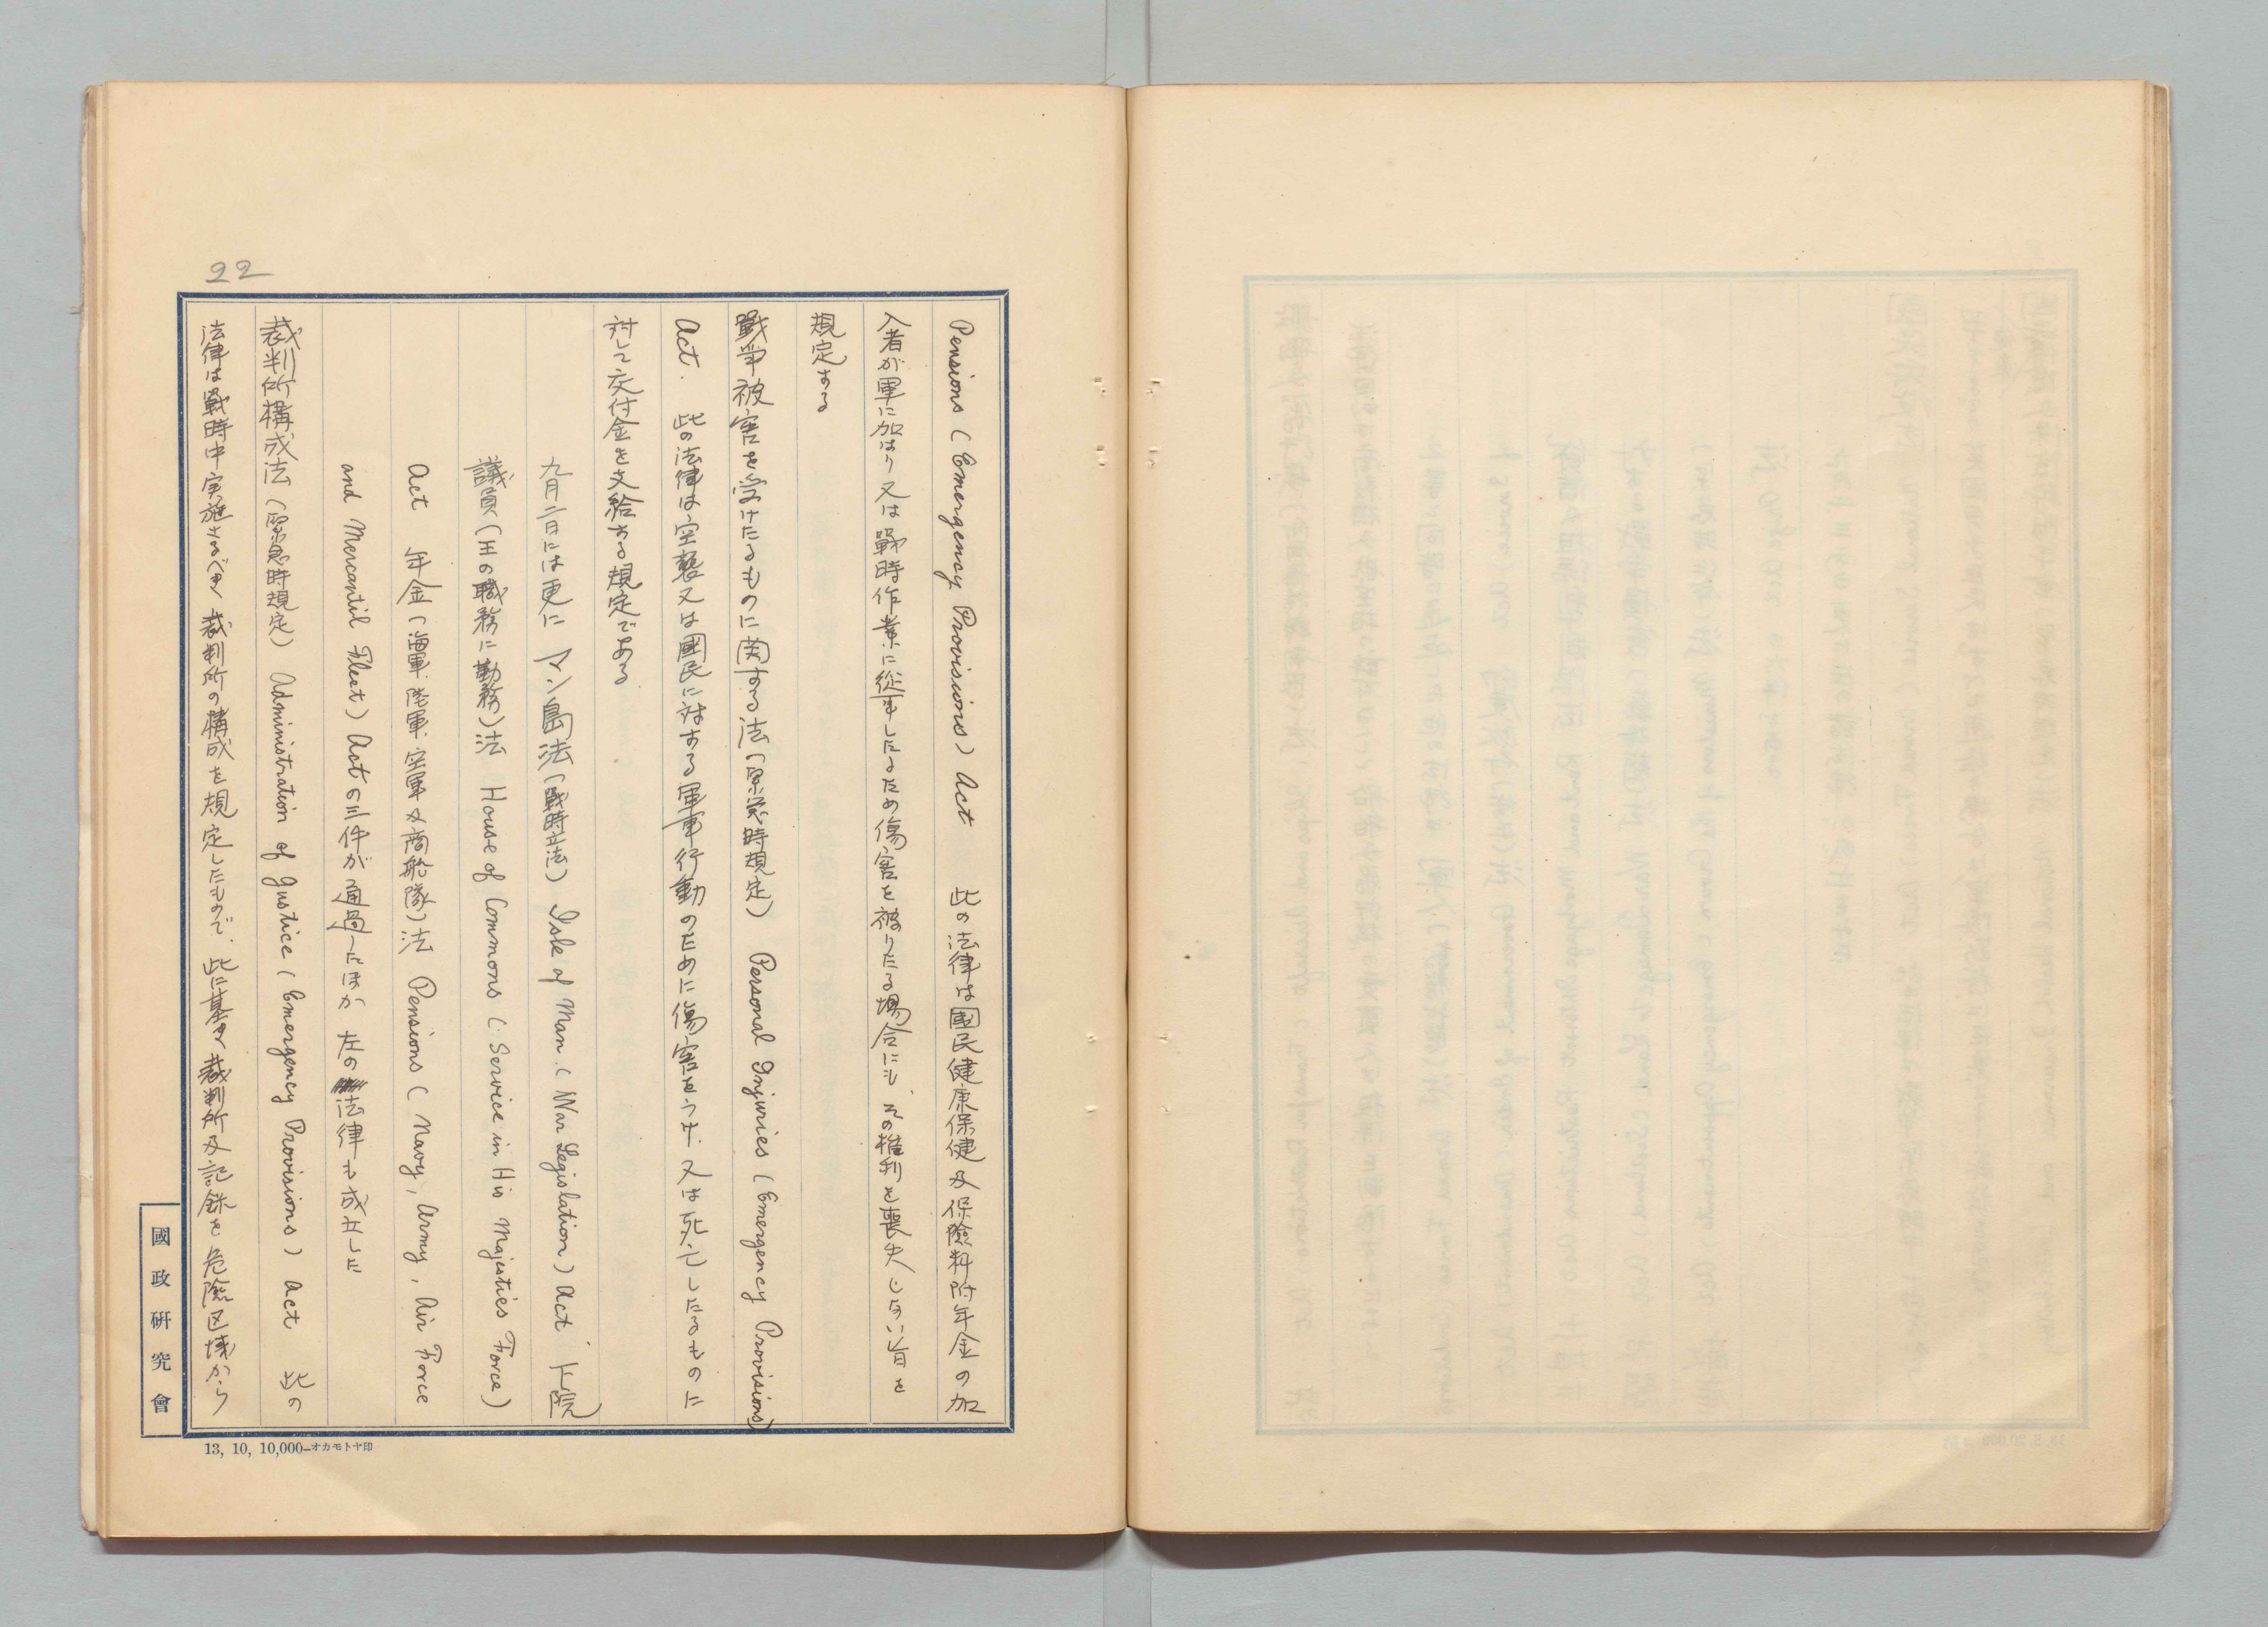 22
Pensions (Emergency Provisions) Act 此の法律は國民健康保健及保險料附年金の加
入者が軍に加はり又は戰時作業に從事したるため傷害を被りたる場合にも、その権利を喪失しない旨を
規定する
戰爭被害を受けたるものに関する法(緊急時規定) Personal Injuries (Emergency Provisions)
Act. 此の法律は空襲又は國民に対する軍事行動のために傷害をうけ、又は死亡したるものに
対して交付金を支給する規定である
九月二日には更に マン島法(戰時立法) Isle of Man (War Legislation) Act 下院
議員(王の職務に勤務)法 House of Commons (Service in His Majesties Force)
Act 年金(海軍、陸軍、空軍及商船隊)法 Pensions (Navy, Army, Air Force
and Mercantil Fleet) Actの三件が通過したほか 左の法律も成立した
裁判所構成法(緊急時規定) Administration of Justice (Emergency Provisions) Act 此の
法律は戰時中実施さるべき裁判所の構成を規定したもので、此に基き裁判所及記録を危險区域から
國政研究會
13, 10, 10,000—オカモトヤ印